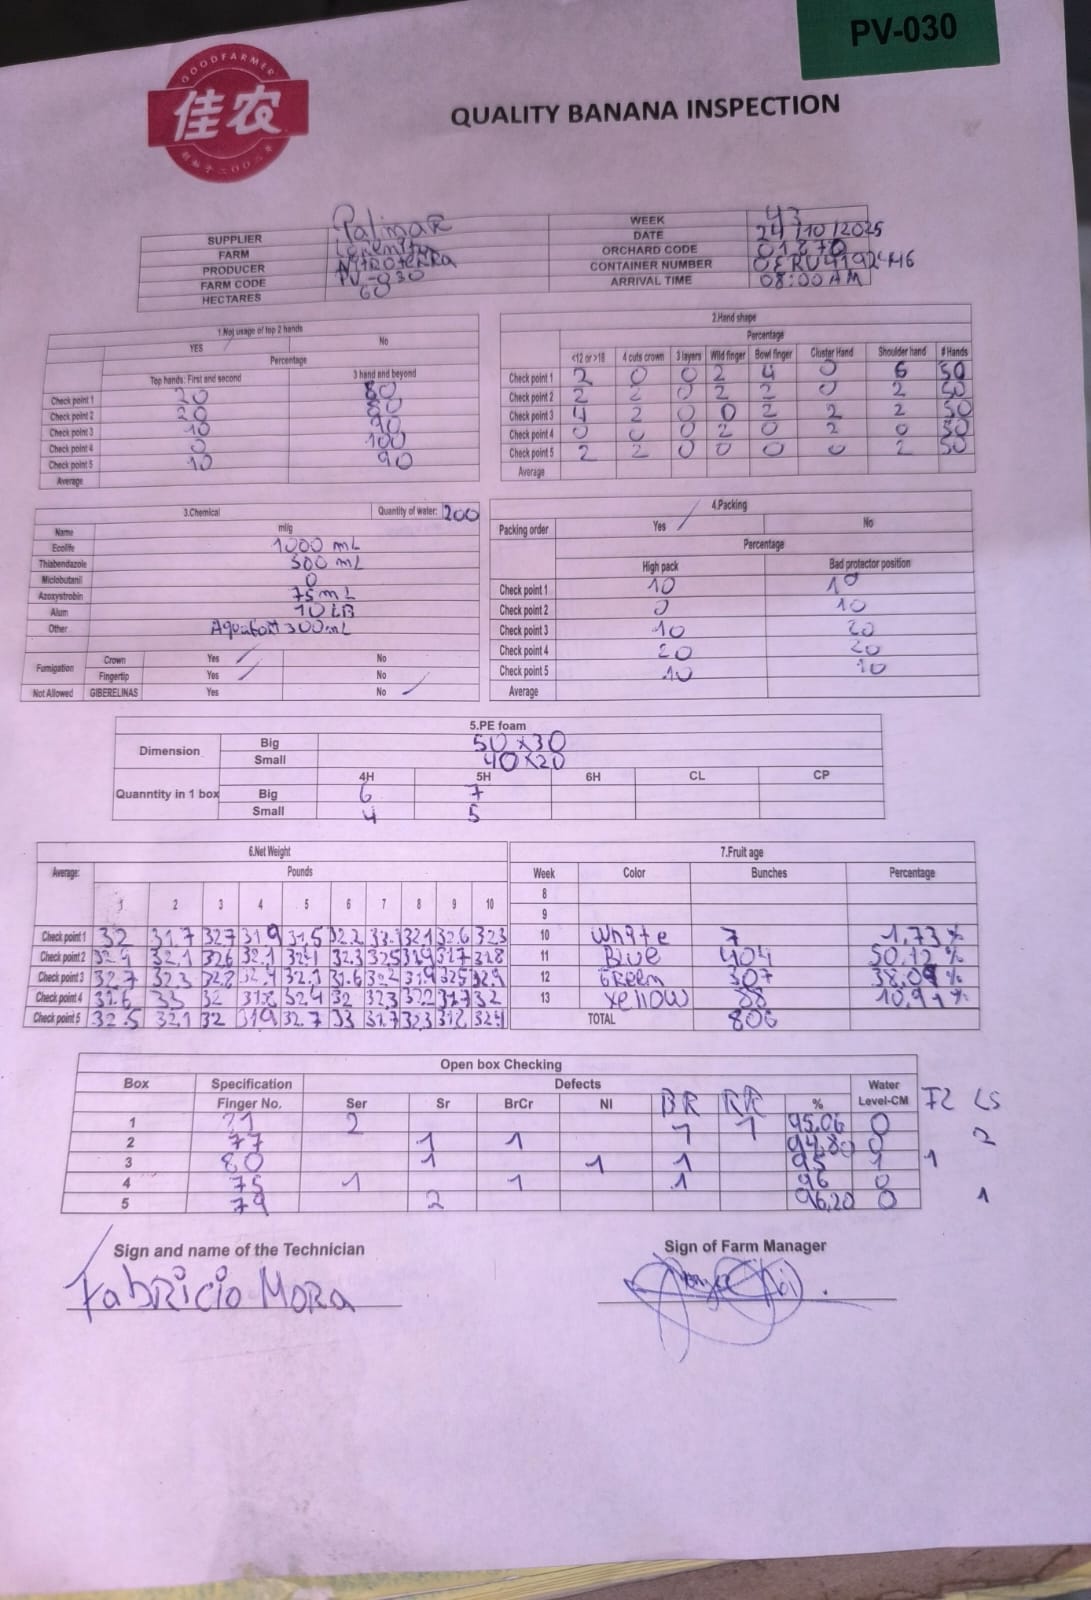 PV-030
GOODFARMER
佳农
QUALITY BANANA INSPECTION
SUPPLIER Palimar WEEK 43
FARM DATE 24/10/2025
PRODUCER Nitroterra ORCHARD CODE
FARM CODE PV-030 CONTAINER NUMBER
HECTARES 60 ARRIVAL TIME 08:00 AM
1.Not usage of top 2 hands
YES No
Percentage
Top hands: First and second 3 hand and beyond
Check point 1 20 80
Check point 2 20 80
Check point 3 10 90
Check point 4 0 100
Check point 5 10 90
Average
2.Hand shape
Percentage
<12 or >18 4 cuts crown 3 layers Wild finger Bowl finger Cluster Hand Shoulder hand # Hands
Check point 1 2 0 0 2 4 0 6 50
Check point 2 2 2 0 2 2 0 2 50
Check point 3 4 2 0 0 2 2 2 50
Check point 4 0 0 0 2 0 2 0 50
Check point 5 2 2 0 0 0 0 2 50
Average
3.Chemical Quantity of water: 200
Name ml/g
Ecolife 1000 mL
Thiabendazole 500 mL
Miclobutanil 0
Azoxystrobin 75 mL
Alum 10 LB
Other 300 mL
Fumigation Crown Yes / No
Fingertip Yes / No
Not Allowed GIBERELINAS Yes No /
4.Packing
Packing order Yes / No
Percentage
High pack Bad protector position
Check point 1 10 10
Check point 2 0 10
Check point 3 10 20
Check point 4 20 20
Check point 5 10 10
Average
5.PE foam
Dimension Big 50 x 30
Small 40 x 20
4H 5H 6H CL CP
Quanntity in 1 box Big 6 7
Small 4 5
6.Net Weight
Average: Pounds
1 2 3 4 5 6 7 8 9 10
Check point 1 32 31.7 32.7 31.9 31.5 32.2 32.1 32.6 32.3
Check point 2 32.1 32.6 32.1 32.3 32.5 31.9 31.7 31.8
Check point 3 32.7 32.3 32.1 31.6 31.9 32.5
Check point 4 31.6 33 32 31.8 32.4 32 32.3 32.2 31.7 32
Check point 5 32.5 32.1 32 31.9 32.7 33 31.7 32.3 31.8
7.Fruit age
Week Color Bunches Percentage
8
9
10 White 7 1,73 %
11 Blue 404 50,12 %
12 Green 307 38,09 %
13 Yellow 88 10,91 %
TOTAL 806
Open box Checking
Box Specification Defects Water
Finger No. Ser Sr BrCr NI BR RR % Level-CM FZ LS
1 2 1 1 95,06 0
2 77 1 1 94,80 0 2
3 80 1 1 1 95 1 1
4 75 1 1 1 96 0
5 79 2 96,20 0 1
Sign and name of the Technician Sign of Farm Manager
Fabricio Mora